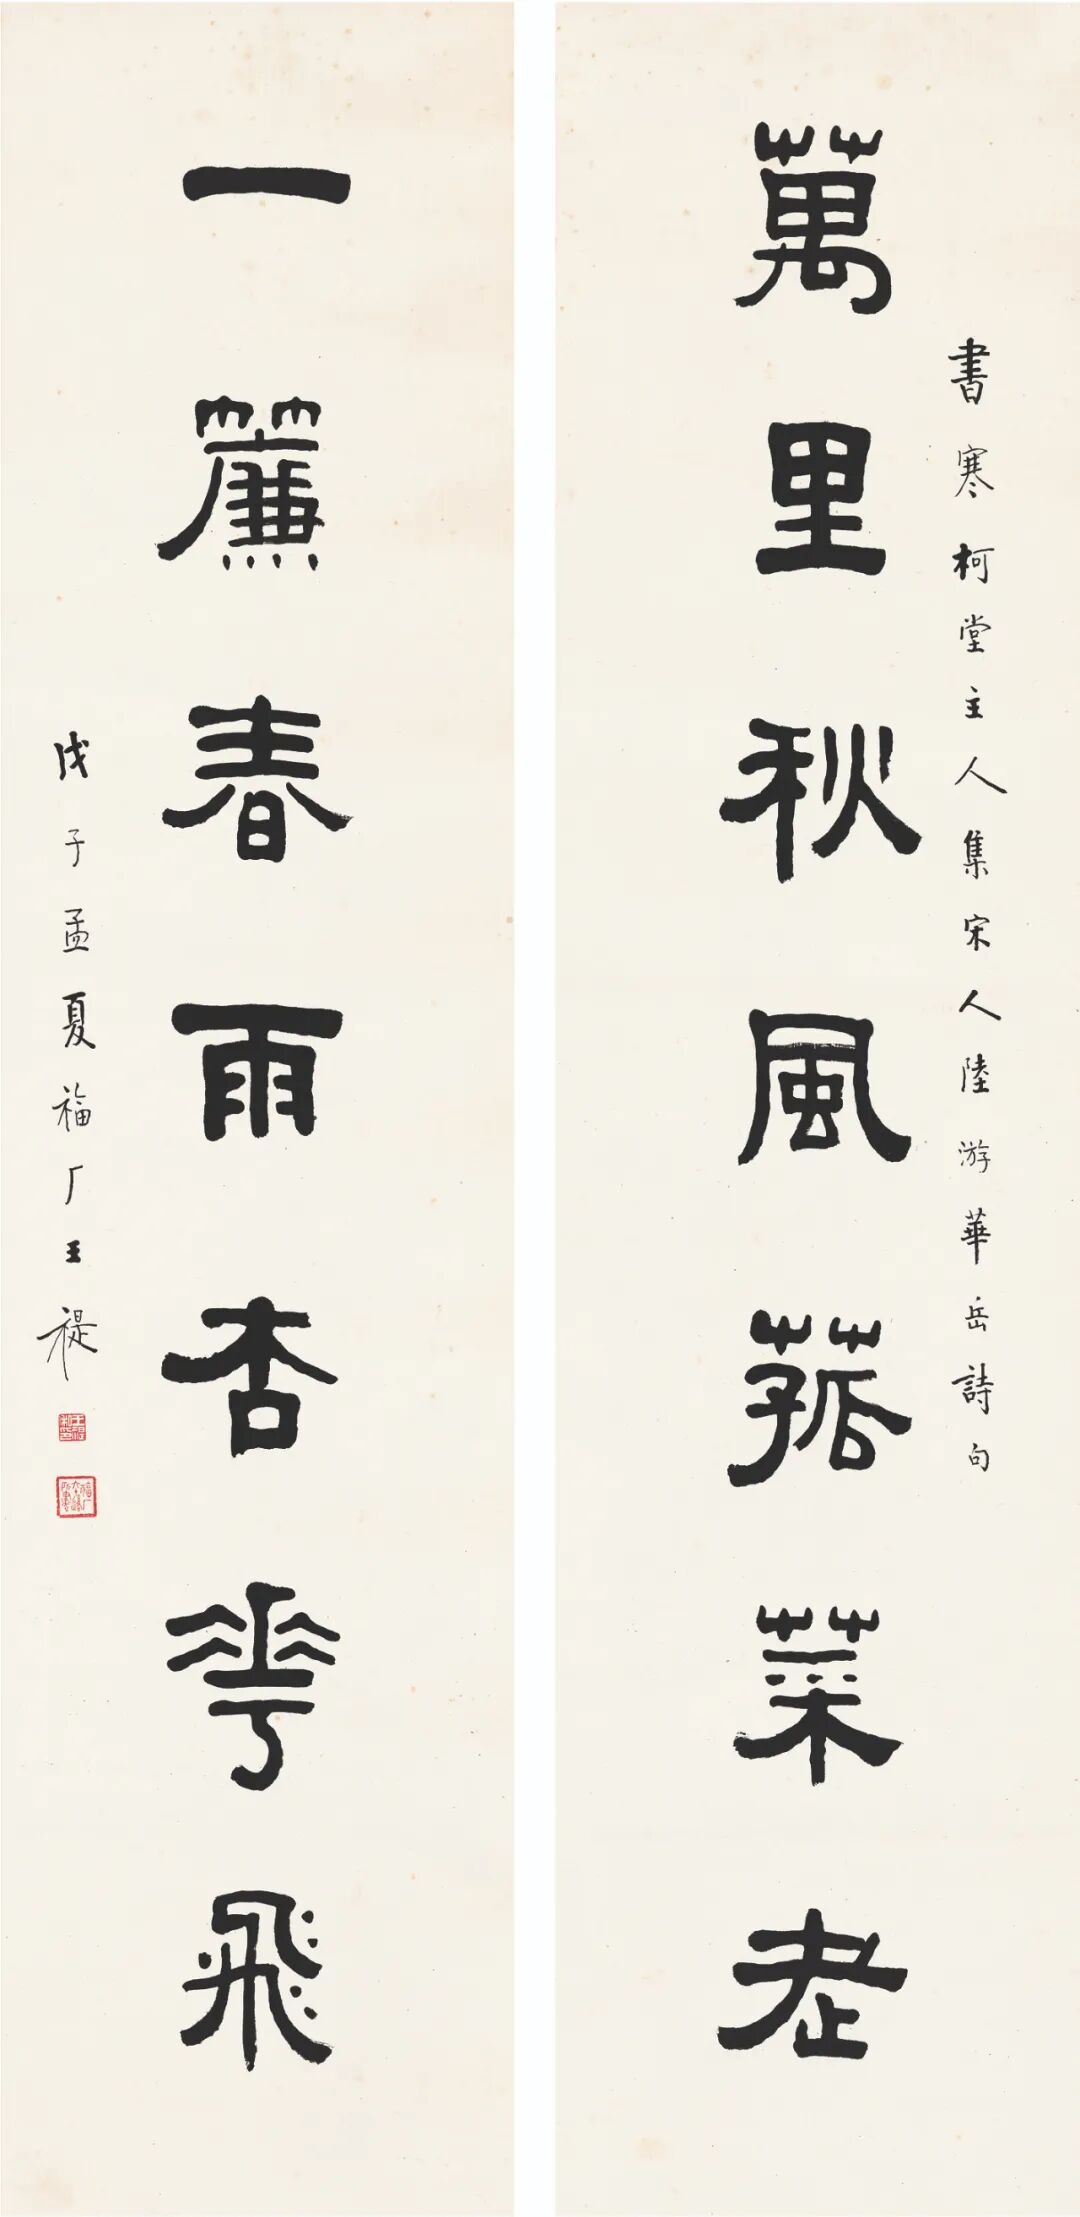 萬里秋風菰菜老
書寒柯堂主人集宋人陸游華岳詩句
一簾春雨杏花飛
戊子孟夏福厂王禔